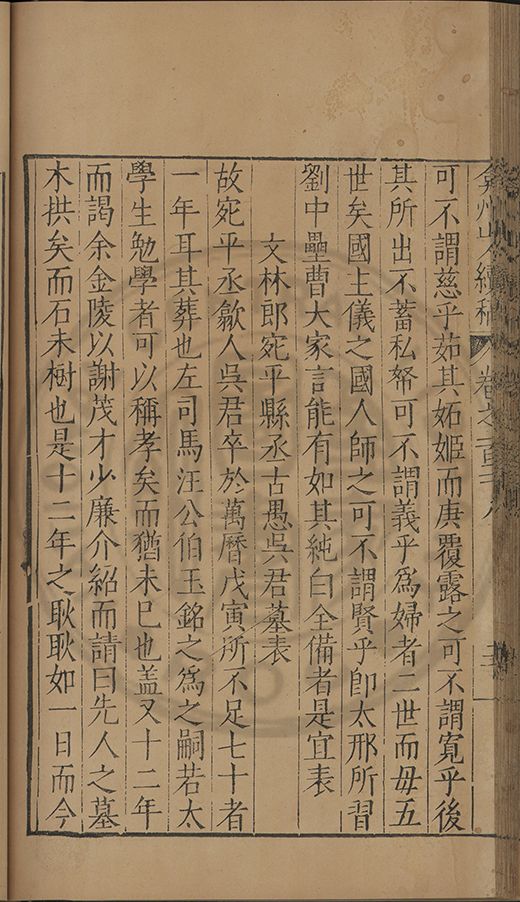 弇州山人續稿 卷之一百二十八
可不謂慈乎茹其妬姬而庚覆露之可不謂寬乎後
其所出不蓄私帑可不謂義乎爲婦者二世而毋五
世矣國主儀之國人師之可不謂賢乎卽太邢所習
劉中壘曹大家言能有如其純白全備者是宜表
文林郎宛平縣丞古愚吳君墓表
故宛平丞歙人吳君卒於萬曆戊寅所不足七十者
一年耳其葬也左司馬汪公伯玉銘之爲之嗣若太
學生勉學者可以稱孝矣而猶未巳也盖又十二年
而謁余金陵以謝茂才少廉介紹而請曰先人之墓
木拱矣而石未樹也是十二年之耿耿如一日而今